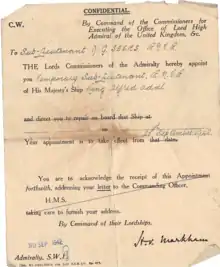 CONFIDENTIAL.
C.W.
By Command of the Commissioners for
Executing the Office of Lord High
Admiral of the United Kingdom, &c.
To Sub-Lieutenant J.G.
THE Lords Commissioners of the Admiralty hereby appoint
you Temporary Sub-Lieutenant,
of His Majesty's Ship King Alfred addl
and direct you to repair on board that Ship at
Your appointment is to take effect from that date.
You are to acknowledge the receipt of this Appointment
forthwith, addressing your letter to the Commanding Officer,
H.M.S.
taking care to furnish your address.
By Command of their Lordships.
Admiralty, S.W.
H. Markham